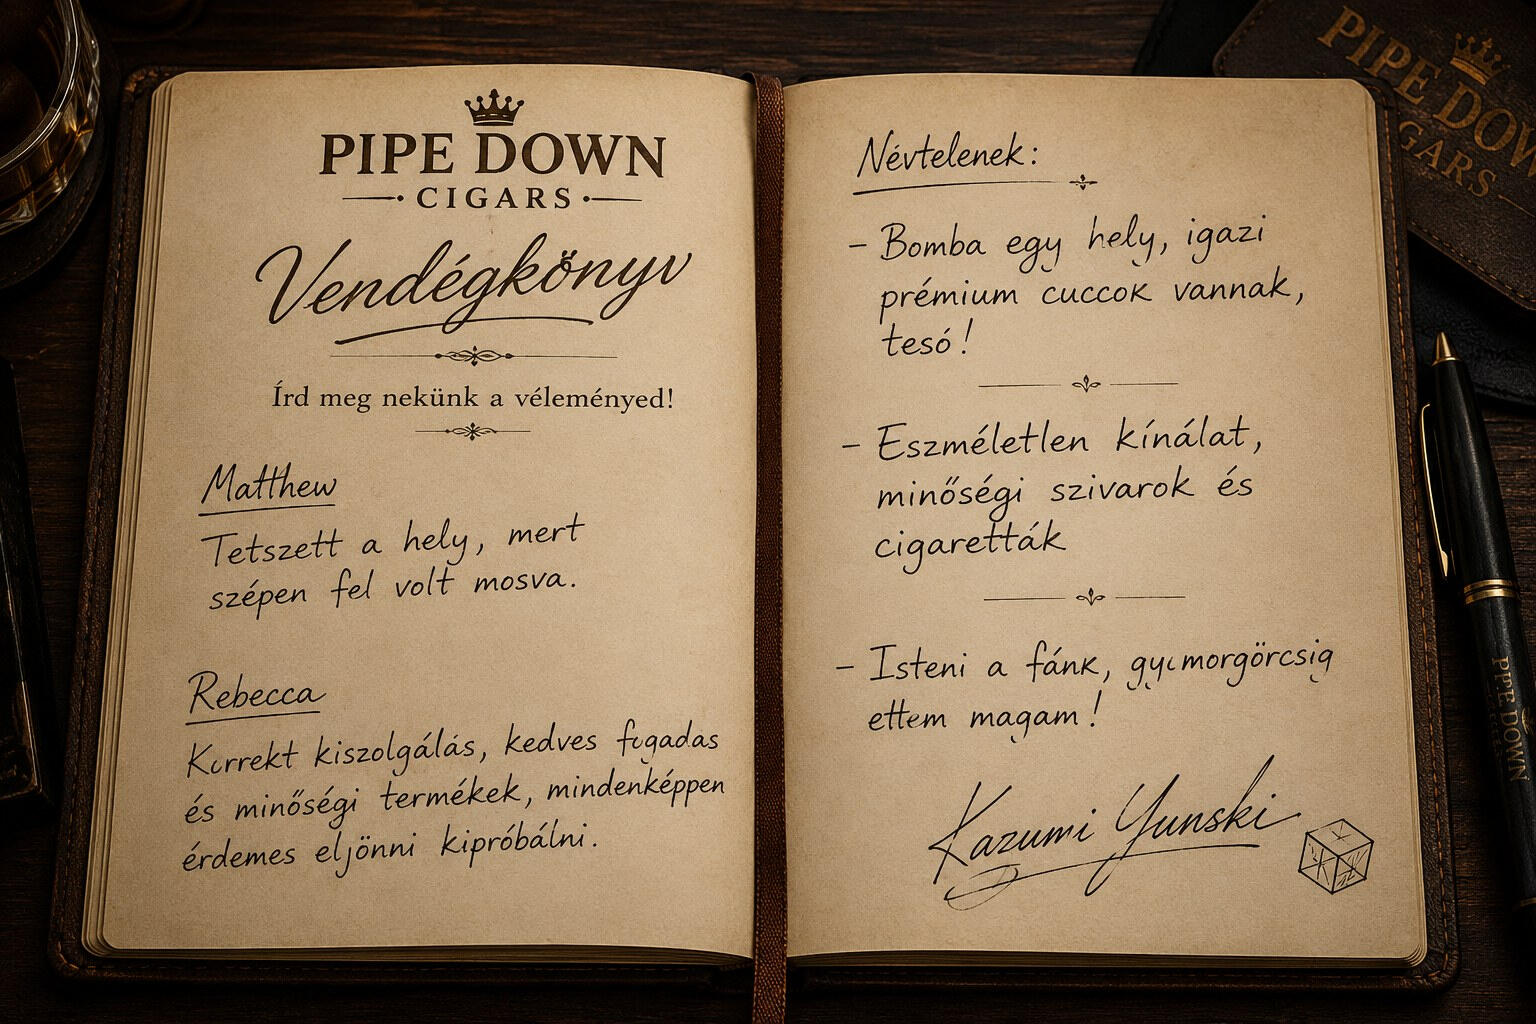 PIPE DOWN
CIGARS
Vendégkönyv
Írd meg nekünk a véleményed!
Matthew
Tetszett a hely, mert
szépen fel volt mosva.
Rebecca
Korrekt kiszolgálás, kedves fogadas
és minőségi termékek, mindenképpen
érdemes eljönni kipróbálni.
Névtelenek:
- Bomba egy hely, igazi
prémium cuccok vannak,
tesó!
- Eszméletlen kínálat,
minőségi szivarok és
cigaretták
- Isteni a fánk, gyomorgörcsig
ettem magam!
Kazumi Yunski
PIPE DOWN
CIGARS
PIPE DOWN